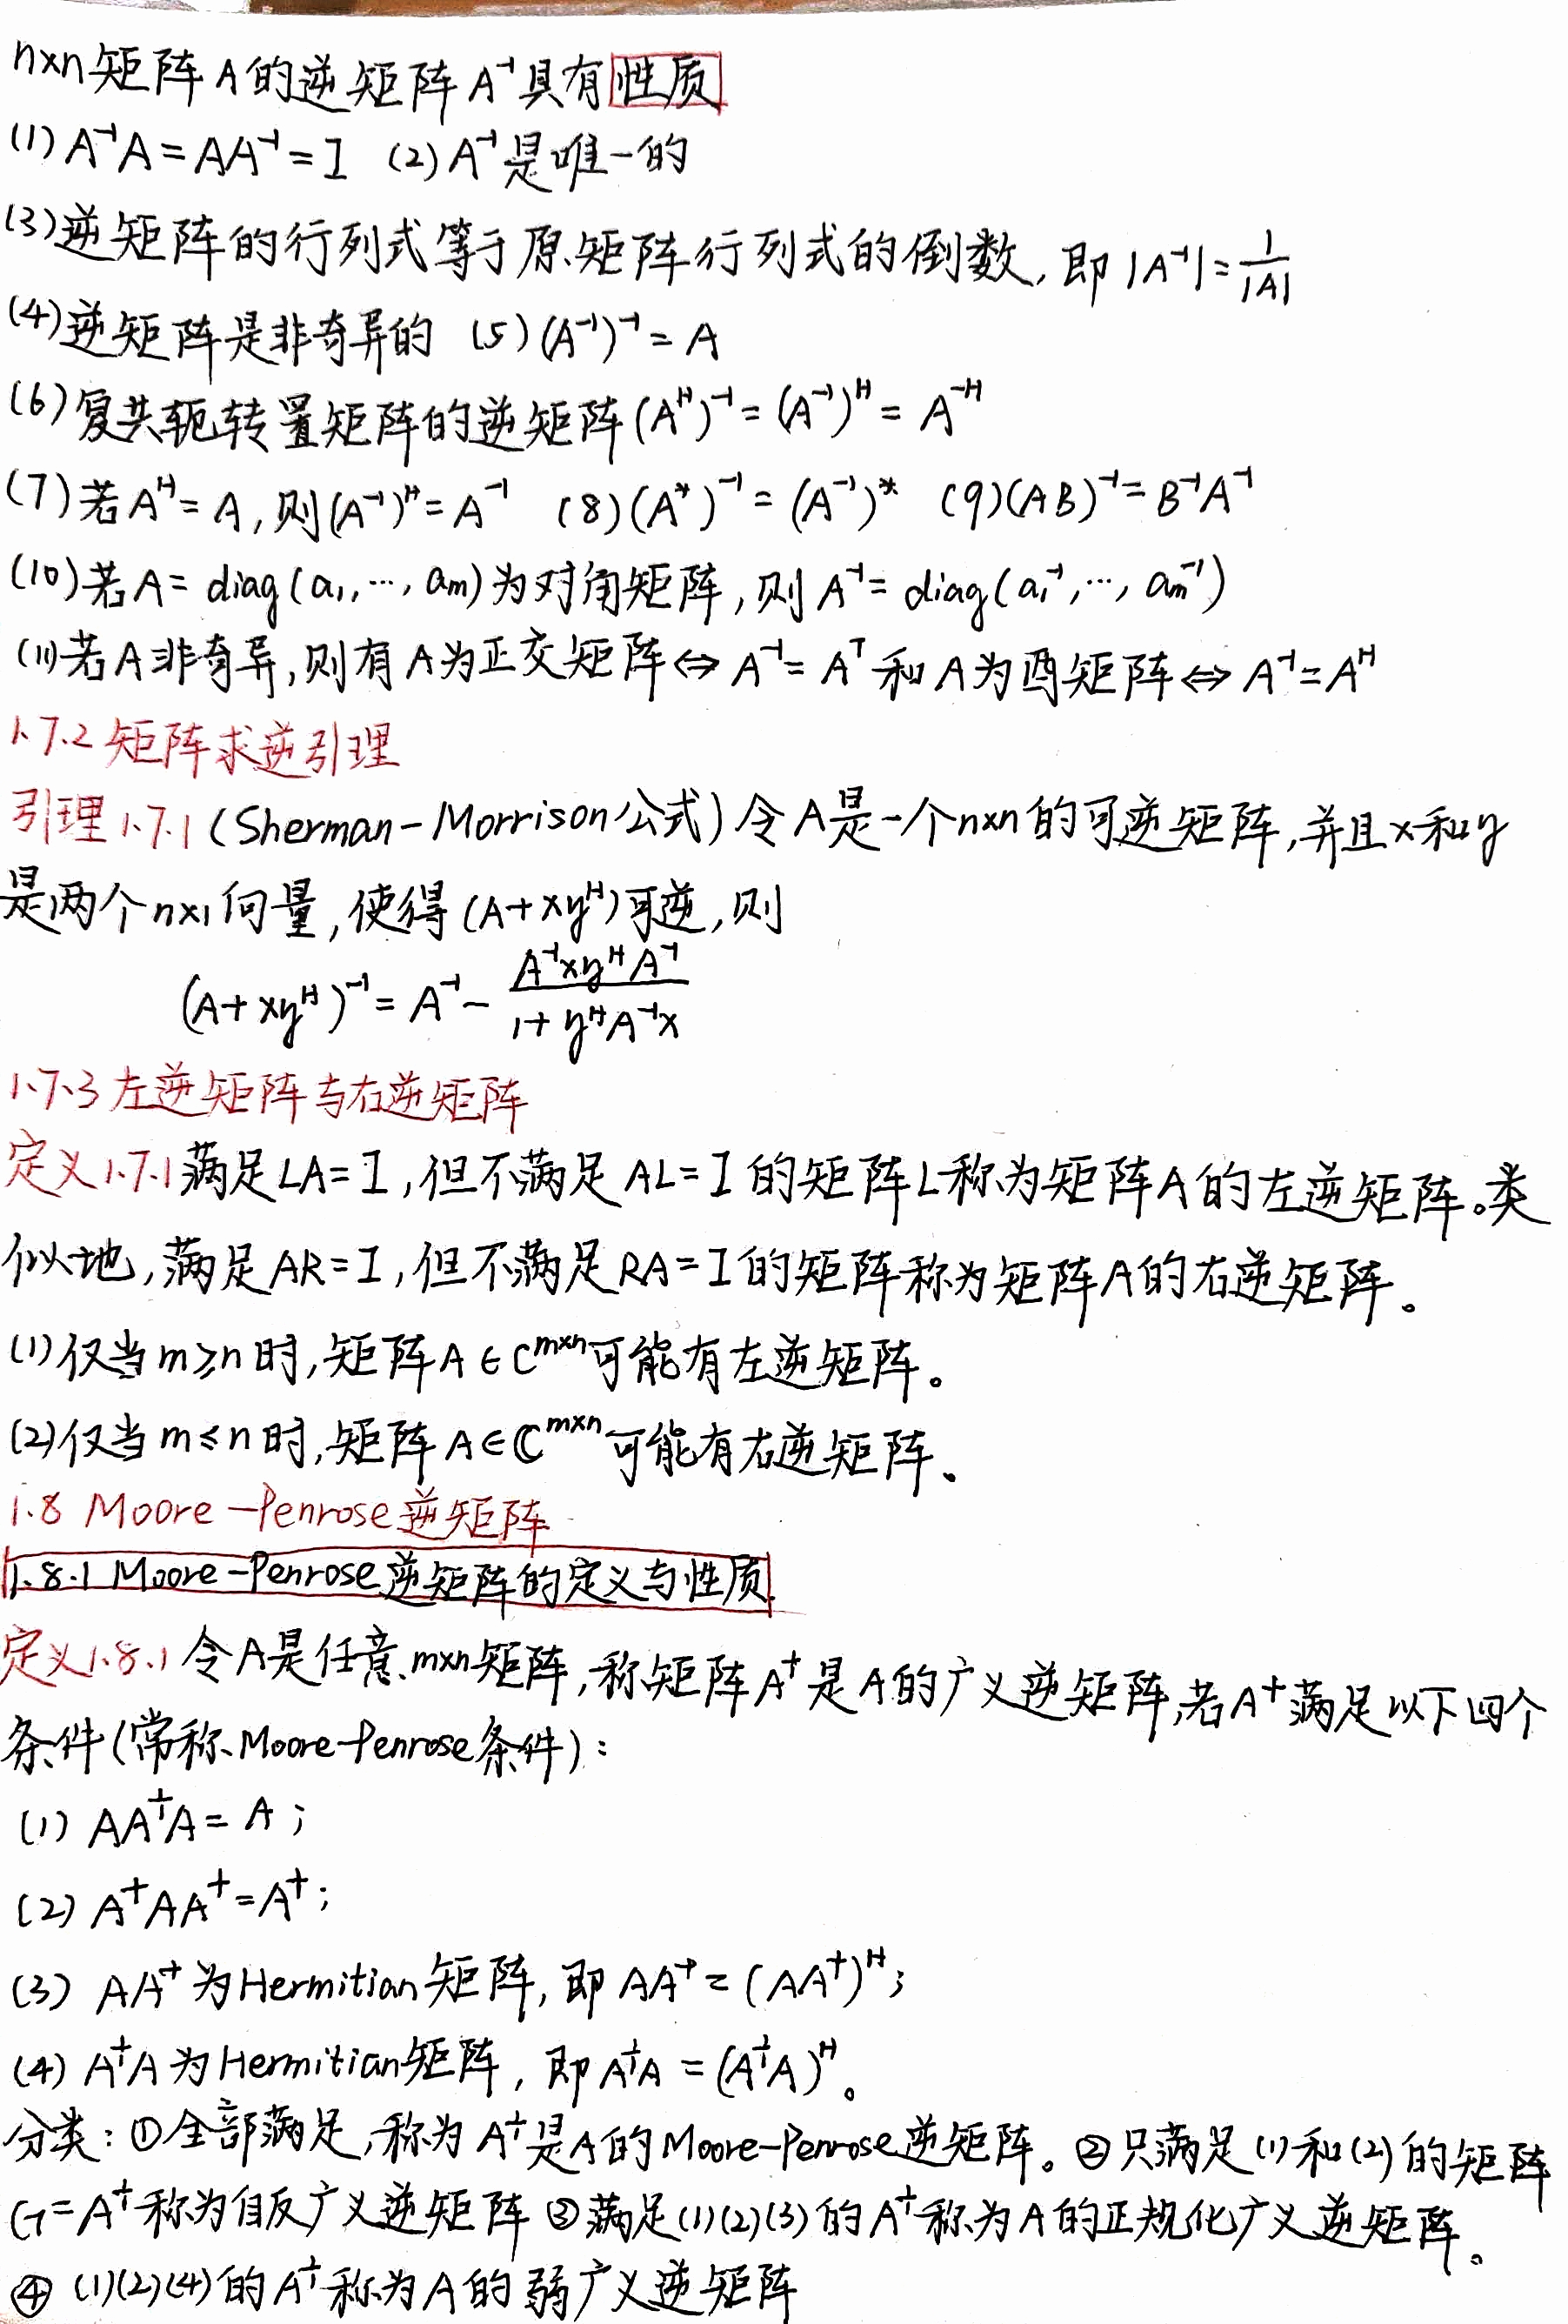 n×n矩阵A的逆矩阵A⁻¹具有性质
(1) A⁻¹A=AA⁻¹=I (2) A⁻¹是唯一的
(3)逆矩阵的行列式等于原矩阵行列式的倒数, 即 |A⁻¹|=1/|A|
(4)逆矩阵是非奇异的 (5) (A⁻¹)⁻¹=A
(6)复共轭转置矩阵的逆矩阵(Aᴴ)⁻¹=(A⁻¹)ᴴ=A⁻ᴴ
(7)若Aᴴ=A,则(A⁻¹)ᴴ=A⁻¹ (8)(A*)⁻¹=(A⁻¹)* (9)(AB)⁻¹=B⁻¹A⁻¹
(10)若A=diag(a₁,…,aₘ)为对角矩阵,则A⁻¹=diag(a₁⁻¹,…,aₘ⁻¹)
(11)若A非奇异,则有A为正交矩阵⇔A⁻¹=Aᵀ和A为酉矩阵⇔A⁻¹=Aᴴ
1.7.2 矩阵求逆引理
引理1.7.1 (Sherman-Morrison公式)令A是一个n×n的可逆矩阵,并且x和y
是两个n×1向量,使得(A+xyᴴ)可逆,则
(A+xyᴴ)⁻¹=A⁻¹-A⁻¹xyᴴA⁻¹/1+yᴴA⁻¹x
1.7.3 左逆矩阵与右逆矩阵
定义1.7.1满足LA=I,但不满足AL=I的矩阵L称为矩阵A的左逆矩阵。类
似地,满足AR=I,但不满足RA=I的矩阵称为矩阵A的右逆矩阵。
(1)仅当m≥n时,矩阵A∈Cᵐˣⁿ可能有左逆矩阵。
(2)仅当m≤n时,矩阵A∈ℂᵐˣⁿ可能有右逆矩阵、
1.8 Moore-Penrose逆矩阵
1.8.1 Moore-Penrose逆矩阵的定义与性质
定义1.8.1 令A是任意m×n矩阵,称矩阵A⁺是A的广义逆矩阵,若A⁺满足以下四个
条件(常称Moore-Penrose条件):
(1) AA⁺A=A;
(2) A⁺AA⁺=A⁺;
(3) AA⁺为Hermitian矩阵,即AA⁺=(AA⁺)ᴴ;
(4) A⁺A为Hermitian矩阵,即A⁺A=(A⁺A)ᴴ。
分类:①全部满足,称为A⁺是A的Moore-Penrose逆矩阵。②只满足(1)和(2)的矩阵
G=A⁺称为自反广义逆矩阵 ③满足(1)(2)(3)的A⁺称为A的正规化广义逆矩阵。
④ (1)(2)(4)的A⁺称为A的弱广义逆矩阵